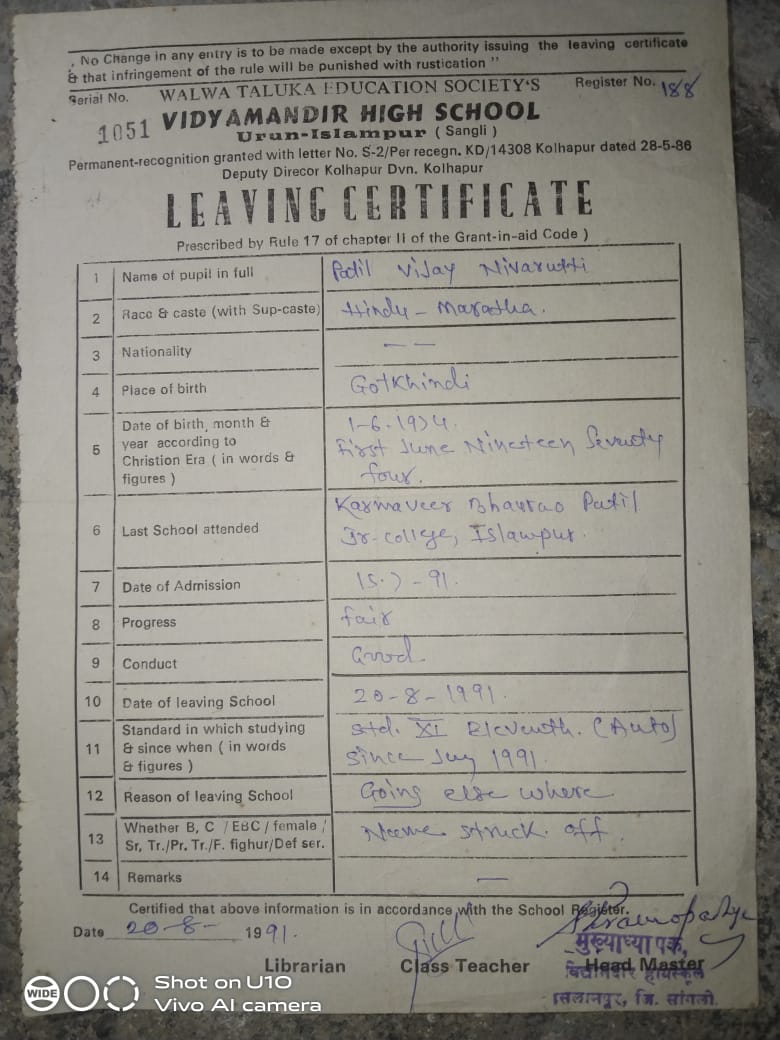 " No Change in any entry is to be made except by the authority issuing the leaving certificate
& that infringement of the rule will be punished with rustication "
Serial No. WALWA TALUKA EDUCATION SOCIETY'S Register No. 188
1051 VIDYAMANDIR HIGH SCHOOL
Urun-Islampur ( Sangli )
Permanent-recognition granted with letter No. S-2/Per recegn. KD/14308 Kolhapur dated 28-5-86
Deputy Direcor Kolhapur Dvn. Kolhapur
LEAVING CERTIFICATE
Prescribed by Rule 17 of chapter II of the Grant-in-aid Code )
1 Name of pupil in full Patil Vijay Nivarutti
2 Race & caste (with Sup-caste) Hindu - Maratha.
3 Nationality — —
4 Place of birth Gotkhindi
5 Date of birth, month & year according to Christion Era ( in words & figures ) 1-6-1974.
First June Nineteen Seventy
four.
6 Last School attended Karmaveer Bhaurao Patil
Jr-college, Islampur.
7 Date of Admission 15-7-91.
8 Progress fair
9 Conduct Good.
10 Date of leaving School 20-8-1991.
11 Standard in which studying & since when ( in words & figures ) std. XI Eleventh. (Auto)
since July 1991.
12 Reason of leaving School Going else where
13 Whether B, C / EBC / female / Sr, Tr./Pr. Tr./F. fighur/Def ser. Name struck off.
14 Remarks —
Certified that above information is in accordance with the School Register.
Date 20-8- 1991.
Librarian Class Teacher Head Master
मुख्याध्यापक,
विद्यामंदिर हायस्कूल
इसलामपूर, जि. सांगली.
WIDE Shot on U10
Vivo AI camera